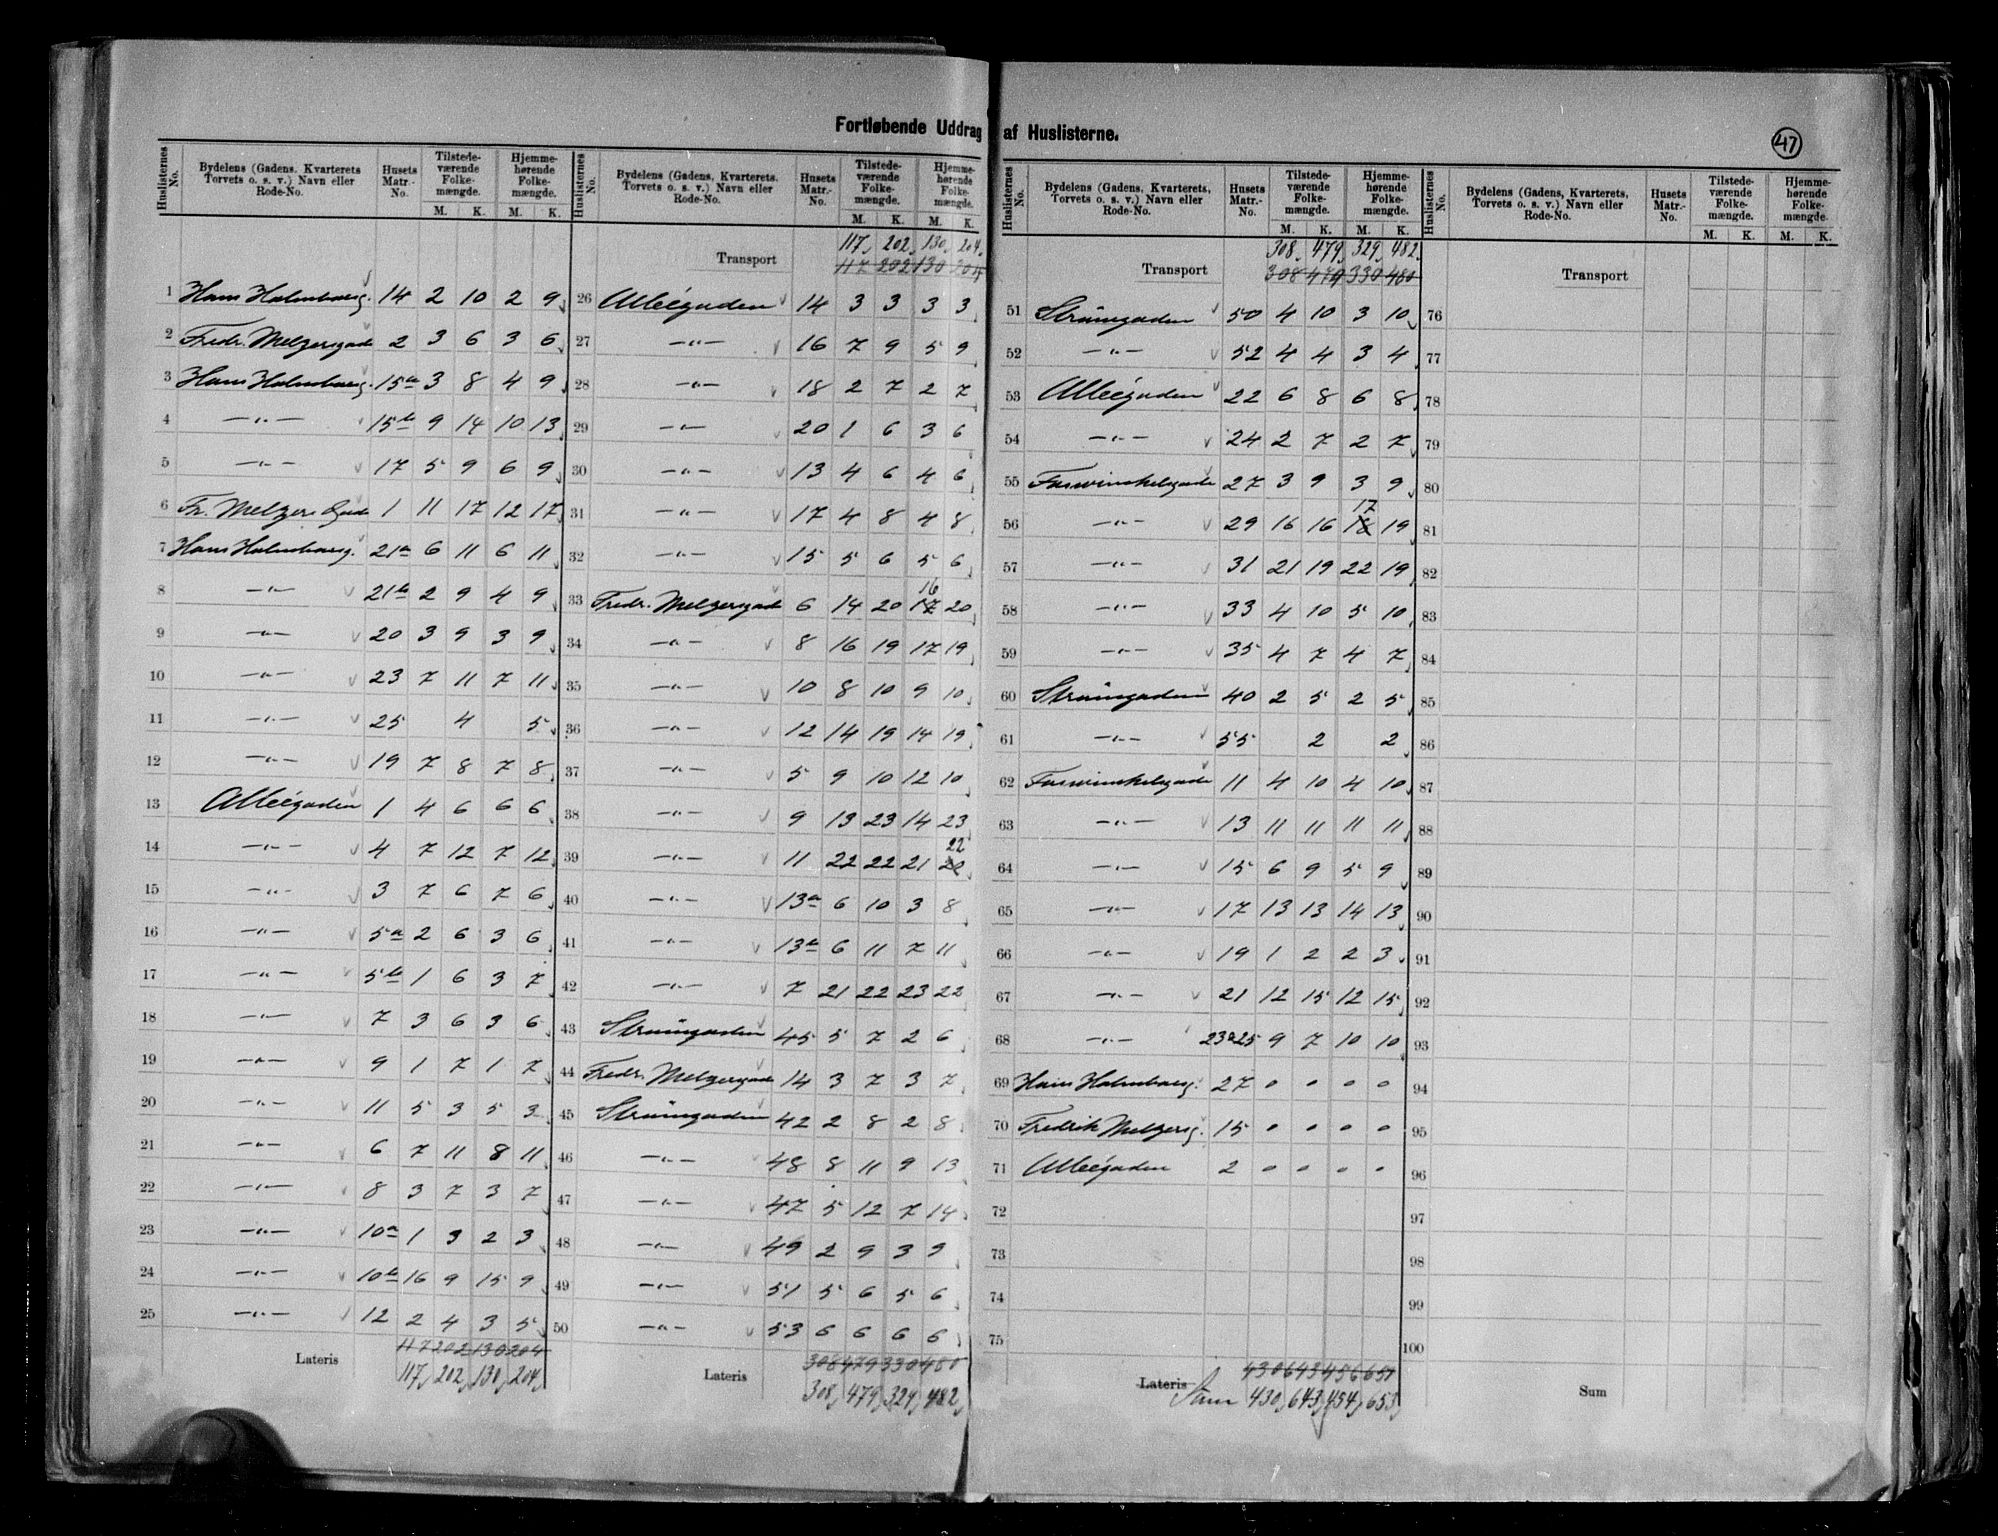 Fortløbende Uddrag af Huslisterne.
47
Huslisternes No. Bydelens (Gadens, Kvarterets Torvets o. s. v.) Navn eller Rode-No. Husets Matr.-No. Tilstedeværende Folkemængde. M. K. Hjemmehørende Folkemængde. M. K.
1 Hans Holmboesg. 14 2 10 2 9
2 Fredr. Melzersgade 2 3 6 3 6
3 Hans Holmboesg. 15a 3 8 4 9
4 —"— 15b 9 14 10 13
5 —"— 17 5 9 6 9
6 Fr. Melzers Gade 1 11 17 12 17
7 Hans Holmboesg. 21a 6 11 6 11
8 —"— 21b 2 9 4 9
9 —"— 20 3 9 3 9
10 —"— 23 7 11 7 11
11 —"— 25 4 5
12 —"— 19 7 8 7 8
13 Alléegaden 1 4 6 6 6
14 —"— 4 7 12 7 12
15 —"— 3 7 6 7 6
16 —"— 5a 2 6 3 6
17 —"— 5b 1 6 3 7
18 —"— 7 3 6 3 6
19 —"— 9 1 7 1 7
20 —"— 11 5 3 5 3
21 —"— 6 7 11 8 11
22 —"— 8 3 7 3 7
23 —"— 10a 1 3 2 3
24 —"— 10b 16 9 15 9
25 —"— 12 2 4 3 5
117 202 130 204
Lateris 117, 202, 130, 204,
Huslisternes No. Bydelens (Gadens, Kvarterets, Torvets o. s. v.) Navn eller Rode-No. Husets Matr.-No. Tilstedeværende Folkemængde. M. K. Hjemmehørende Folkemængde. M. K.
117, 202, 130, 204,
Transport 117 202 130 204
26 Alléegaden 14 3 3 3 3
27 —"— 16 7 9 5 9
28 —"— 18 2 7 2 7
29 —"— 20 1 6 3 6
30 —"— 13 4 6 4 6
31 —"— 17 4 8 4 8
32 —"— 15 5 6 5 6
16
33 Fredr. Melzersgade 6 14 20 17 20
34 —"— 8 16 19 17 19
35 —"— 10 8 10 9 10
36 —"— 12 14 19 14 19
37 —"— 5 9 10 12 10
38 —"— 9 13 23 14 23
22
39 —"— 11 22 22 21 20
40 —"— 13a 6 10 3 8
41 —"— 13b 6 11 7 11
42 —"— 7 21 22 23 22
43 Strømgaden 45 5 7 2 6
44 Fredr. Melzersgade 14 3 7 3 7
45 Strømgaden 42 2 8 2 8
46 —"— 48 8 11 9 13
47 —"— 47 5 12 7 14
48 —"— 49 2 9 3 9
49 —"— 51 5 6 5 6
50 —"— 53 6 6 6 6
308 479 330 480
Lateris 308, 479, 329, 482,
Huslisternes No. Bydelens (Gadens, Kvarterets, Torvets o. s. v.) Navn eller Rode-No. Husets Matr.-No. Tilstedeværende Folkemængde. M. K. Hjemmehørende Folkemængde. M. K.
308, 479, 329, 482,
Transport 308 479 330 480
51 Strømgaden 50 4 10 3 10
52 —"— 52 4 4 3 4
53 Alléegaden 22 6 8 6 8
54 —"— 24 2 7 2 7
55 Fosswinckelsgade 27 3 9 3 9
17
56 —"— 29 16 16 18 19
57 —"— 31 21 19 22 19
58 —"— 33 4 10 5 10
59 —"— 35 4 7 4 7
60 Strømgaden 40 2 5 2 5
61 —"— 55 2 2
62 Fosswinckelsgade 11 4 10 4 10
63 —"— 13 11 11 11 11
64 —"— 15 6 9 5 9
65 —"— 17 13 13 14 13
66 —"— 19 1 2 2 3
67 —"— 21 12 15 12 15
68 —"— 23&25 9 7 10 10
69 Hans Holmboesg. 27 0 0 0 0
70 Fredrik Melzersg. 15 0 0 0 0
71 Alléegaden 2 0 0 0 0
72
73
74
75
430 643 456 651
Lateris
Sum 430, 643, 454, 653,
Huslisternes No. Bydelens (Gadens, Kvarterets, Torvets o. s. v.) Navn eller Rode-No. Husets Matr.-No. Tilstedeværende Folkemængde. M. K. Hjemmehørende Folkemængde. M. K.
Transport
76
77
78
79
80
81
82
83
84
85
86
87
88
89
90
91
92
93
94
95
96
97
98
99
100
Sum